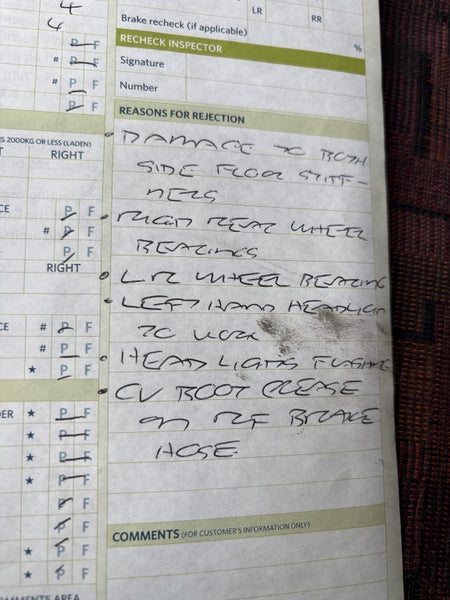 4
4
P F
# P F
# P F
P F
LR RR
Brake recheck (if applicable)
RECHECK INSPECTOR %
Signature
Number
REASONS FOR REJECTION
2000KG OR LESS (LADEN)
RIGHT
P F
# P F
P F
RIGHT
# P F
# P
★ P F
★ P F
★ P F
★ P F
★ P F
P F
P F
★ P F
★ P F
• DAMAGE TO BOTH
SIDE FLOOR STIFF-
NERS
• RIGHT REAR WHEEL
BEARINGS
• L.R WHEEL BEARING
• LEFT HAND HEADLIGH
TO WORK
• HEAD LIGHTS
• CV BOOT GREASE
ON RF BRAKE
HOSE.
COMMENTS (FOR CUSTOMER'S INFORMATION ONLY)